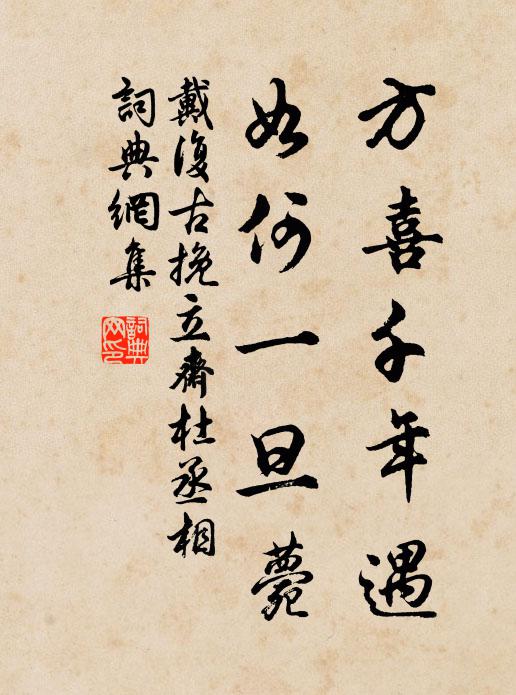 方喜千年遇
如何一旦薨
戴復古挽立齋杜丞相
詞典網集
詞典網印